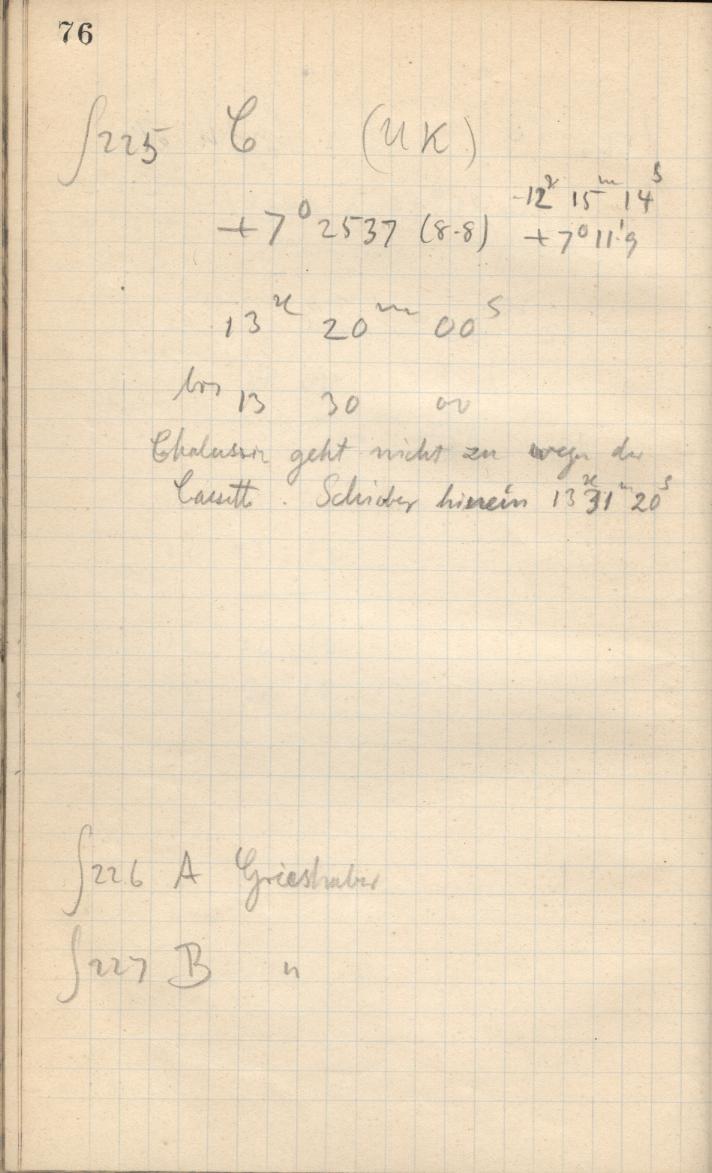 76
∫225 C (UK)
12ʰ 15ᵐ 14ˢ
+7° 2537 (8.8) +7° 11'9
13ʰ 20ᵐ 00ˢ
bis 13 30 00
geht nicht zu wegen der
Cassette. Schieber hinein 13ʰ 31ᵐ 20ˢ
∫226 A Grieshaber
∫227 B "